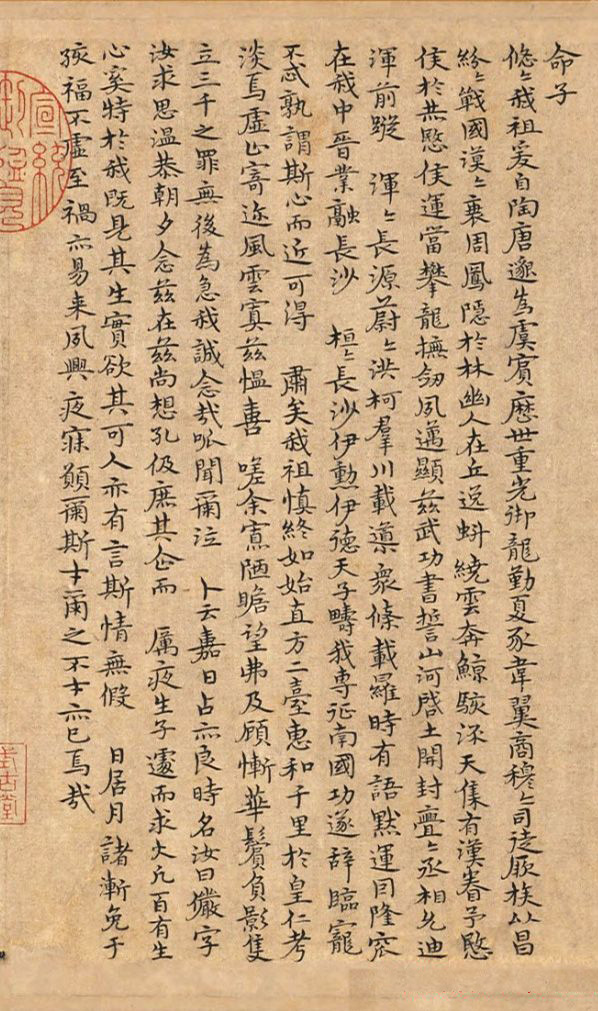 命子
悠〻我祖爰自陶唐邈為虞賓歷世重光御龍勤夏豕韋翼商穆〻司徒厥族以昌
紛〻戰國漠〻衰周鳳隱於林幽人在丘逸虯繞雲奔鯨駭流天集有漢眷予愍
侯於赫愍侯運當攀龍撫劒夙邁顯茲武功書誓山河啓土開封亹〻丞相允迪
渾前蹤 渾〻長源蔚〻洪柯羣川載導眾條載羅時有語默運因隆窊
在我中晉業融長沙 桓〻長沙伊勳伊德天子疇我專征南國功遂辭臨寵
不忒孰謂斯心而近可得 肅矣我祖慎終如始直方二臺惠和千里於皇仁考
淡焉虛止寄迹風雲寘茲慍喜 嗟余寡陋瞻望弗及顧慚華鬢負影隻
立三千之罪無後為急我誠念哉呱聞爾泣 卜云嘉日占亦良時名汝曰儼字
汝求思溫恭朝夕念茲在茲尚想孔伋庶其企而 厲夜生子遽而求火凡百有生
心奚特於我既見其生實欲其可人亦有言斯情無假 日居月諸漸免于
孩福不虛至禍亦易來夙興夜寐願爾斯才爾之不才亦已焉哉
宣統
御覽
式古堂